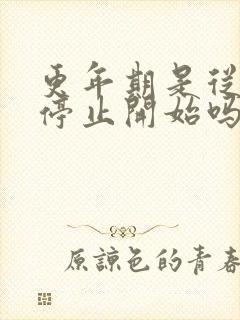 更年期是從
停止開始嗎
原諒色的青春